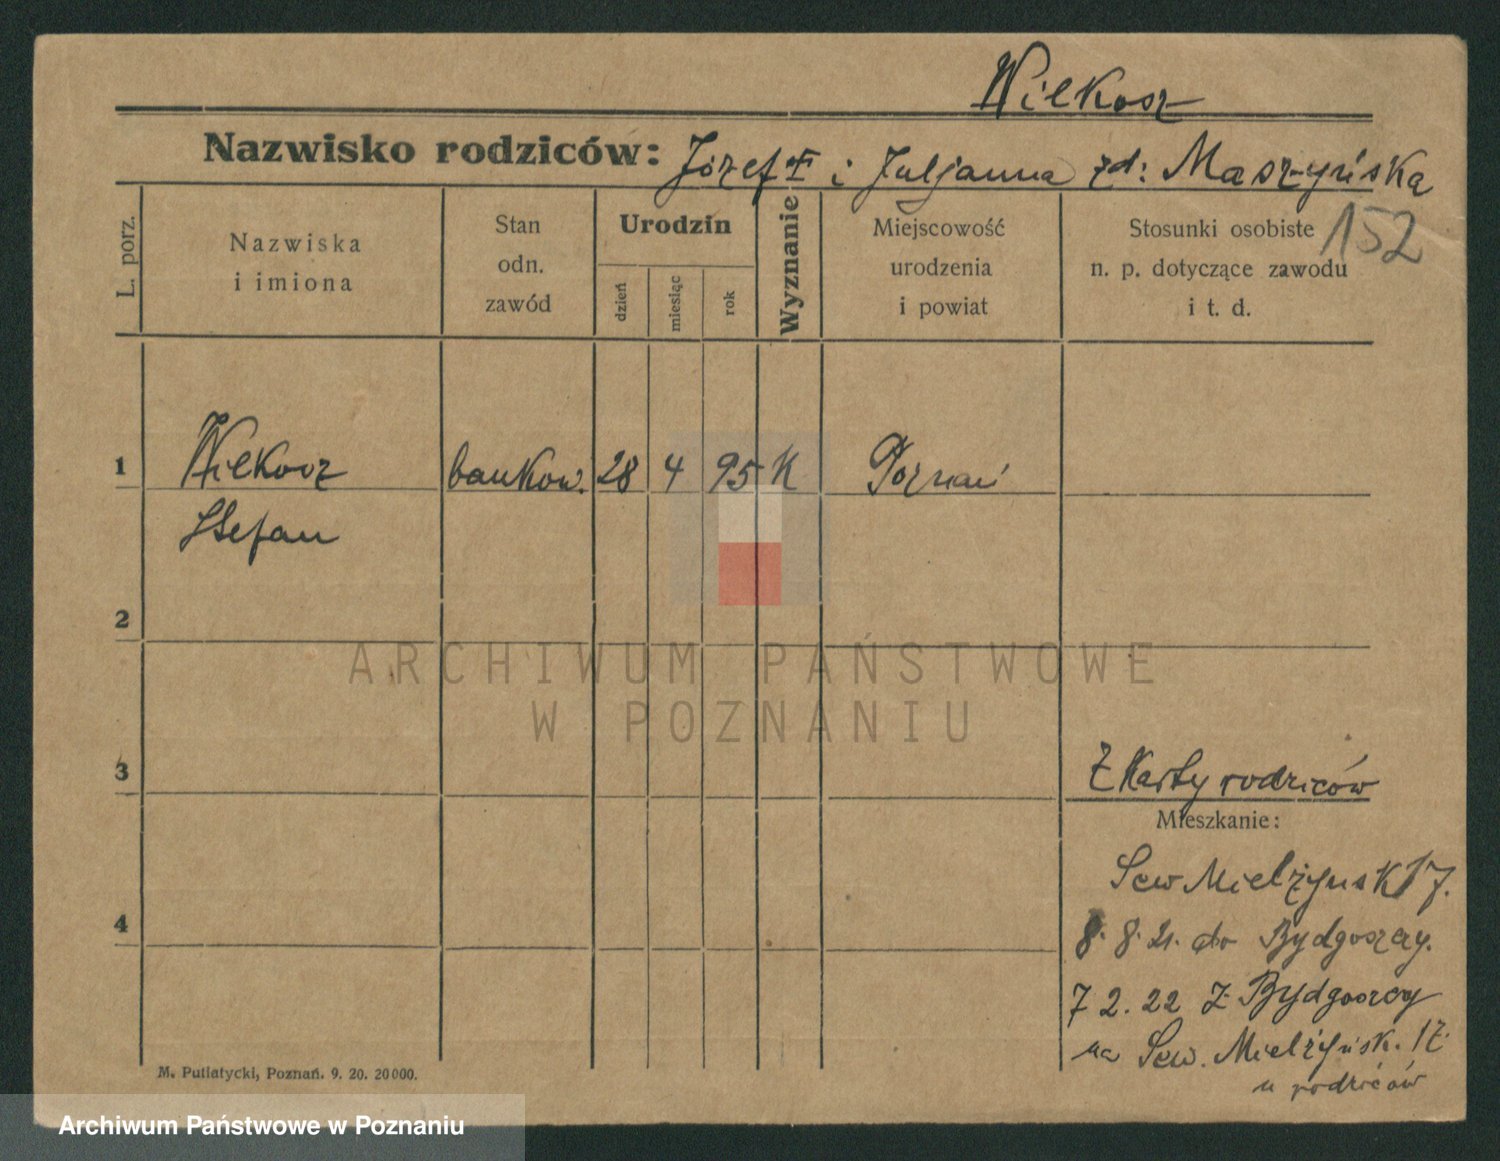 Wilkosz
Nazwisko rodziców: Józef i Juljanna zd: Maszyńska
152
L. porz.
Nazwiska
i imiona
Stan
odn.
zawód
Urodzin
dzień
miesiąc
rok
Wyznanie
Miejscowość
urodzenia
i powiat
Stosunki osobiste
n. p. dotyczące zawodu
i t. d.
1 Wilkosz bankow. 28 4 95 K Poznań
Stefan
2
3
Z Karty rodziców
Mieszkanie:
Sew Mielżynsk 17.
4
8. 8. 21. do Bydgoszczy.
7 2. 22 Z Bydgoszczy
na Sew. Mielżyńsk. 17
u rodziców
M. Putiatycki, Poznań. 9. 20. 20000.
ARCHIWUM PAŃSTWOWE
W POZNANIU
Archiwum Państwowe w Poznaniu